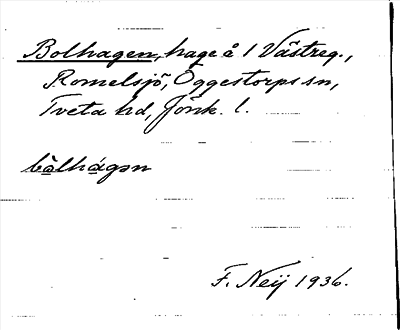 Bolhagen, hage å 1 Västreg.,
Romelsjö, Öggestorps sn,
Tveta hd, Jönk. l.
bòlhágən
F. Neij 1936.